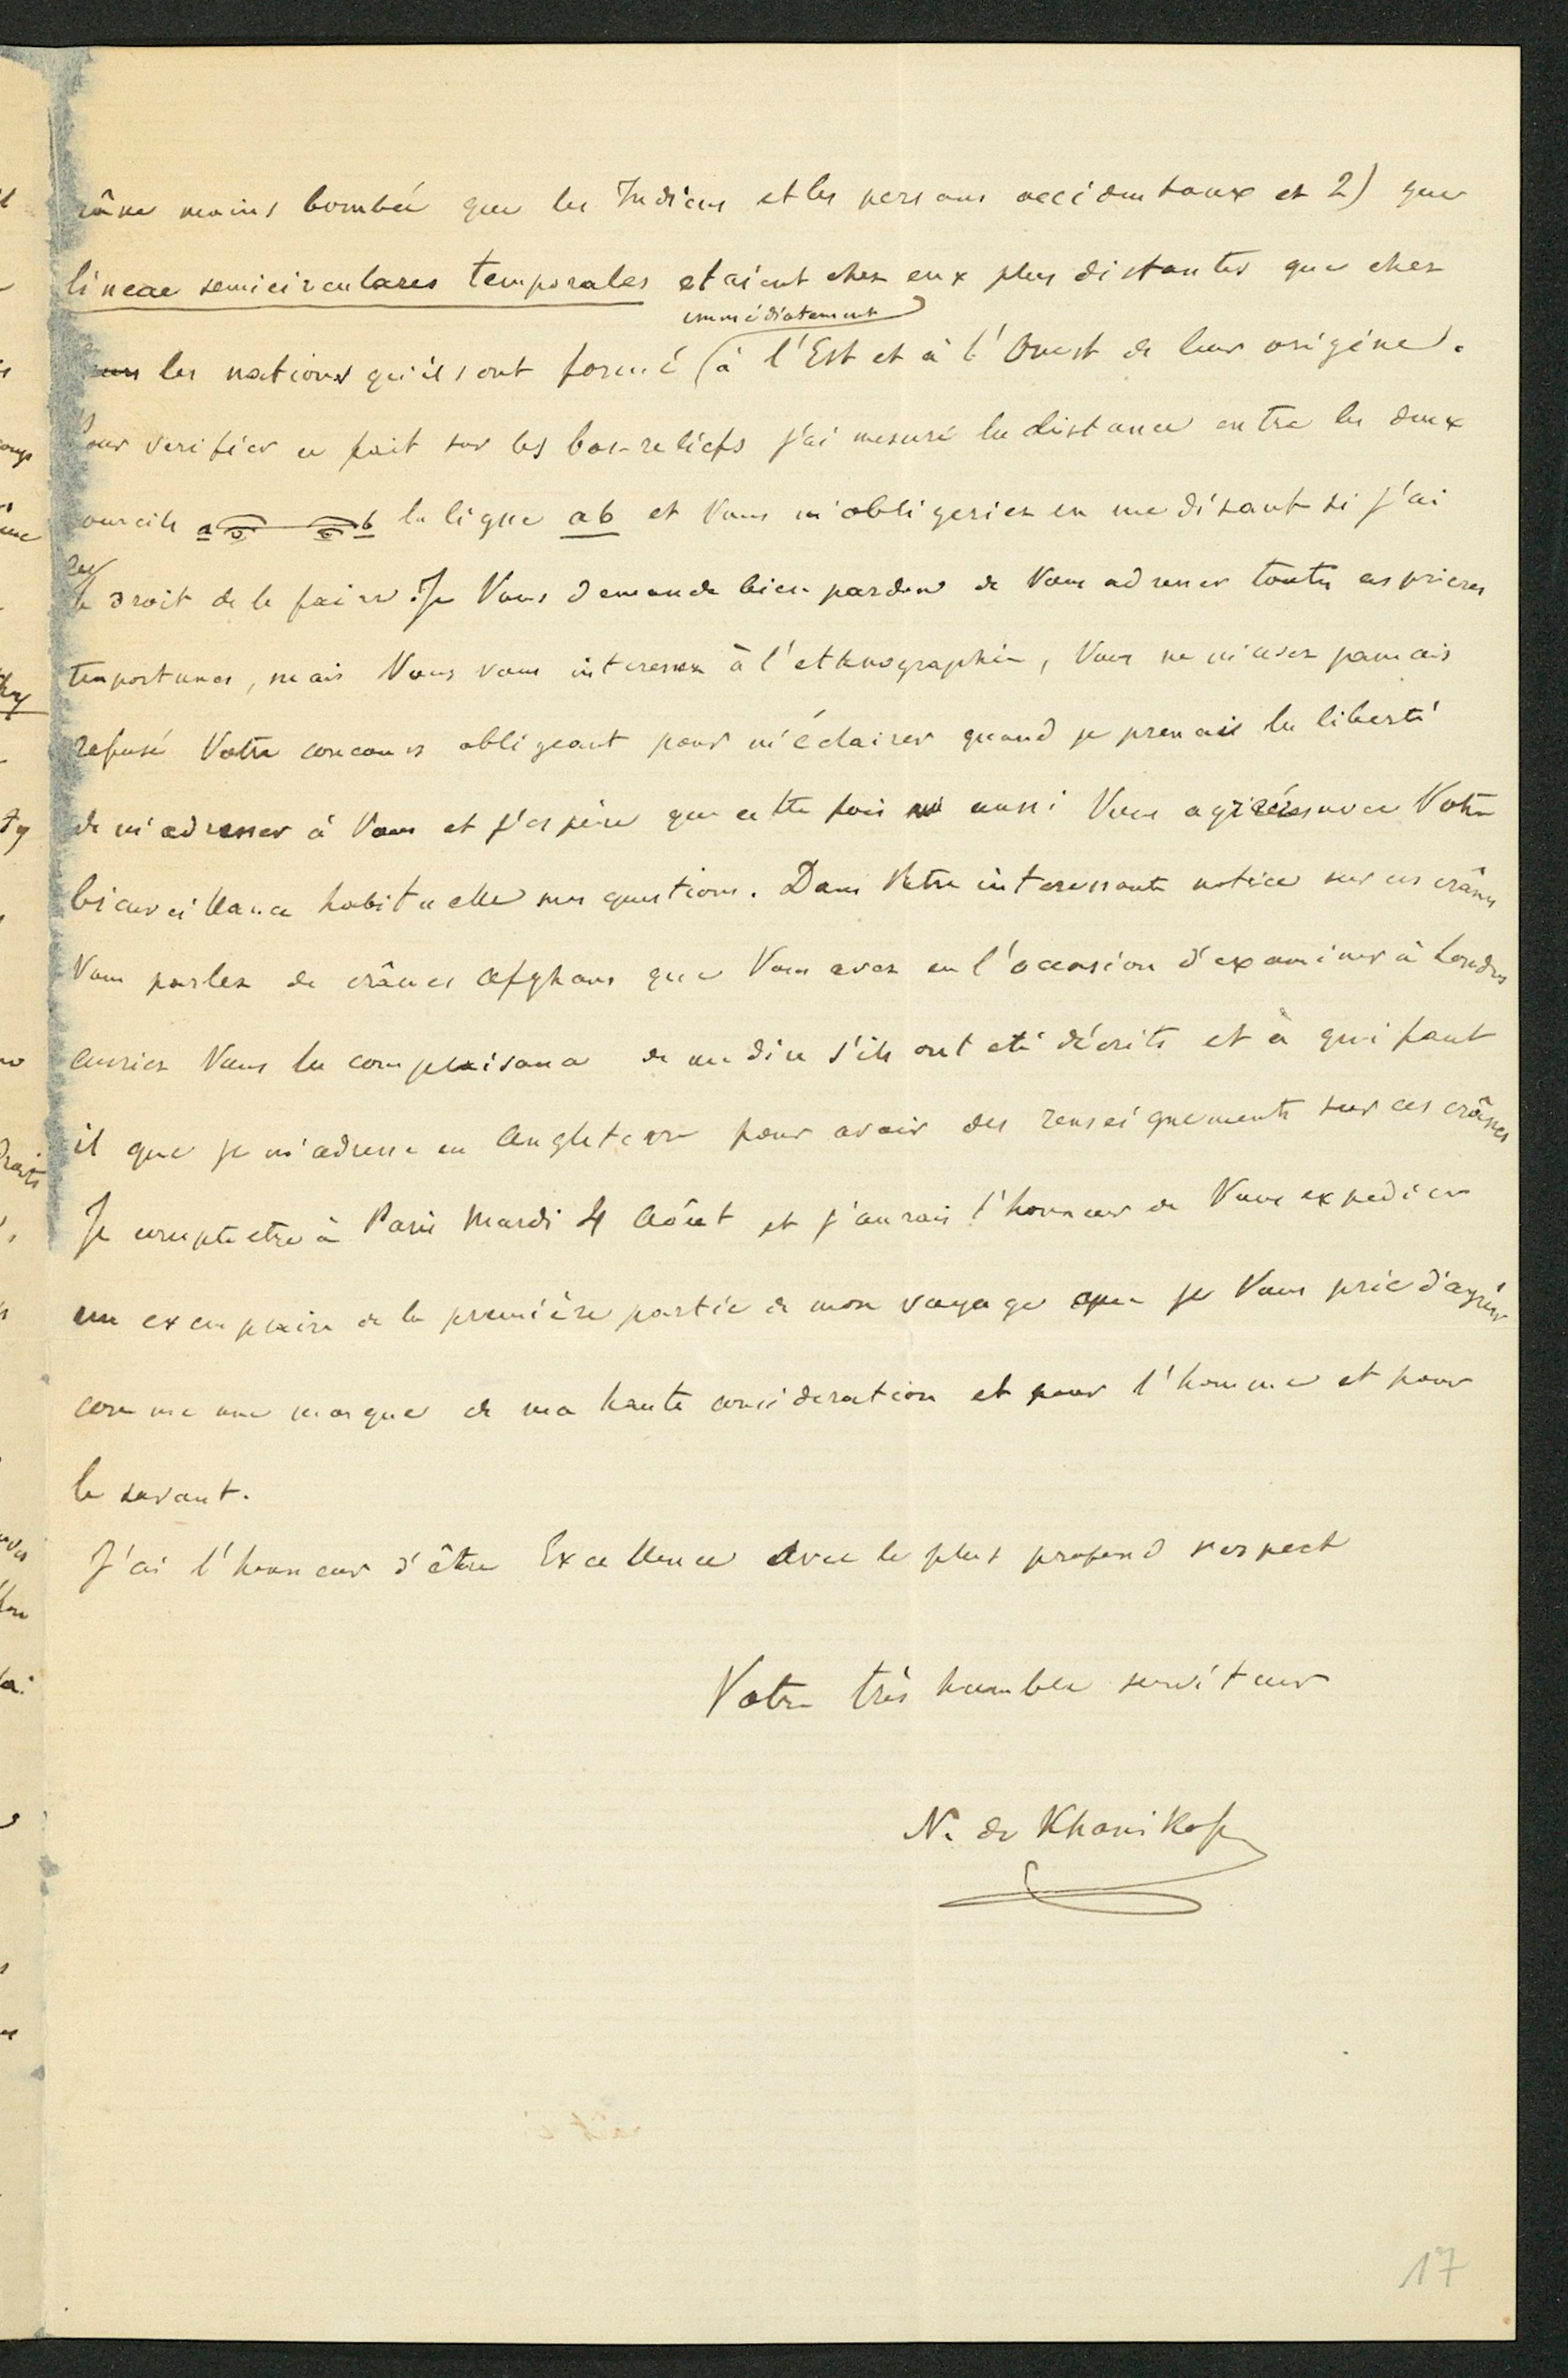 râne moins bombé que les Indiens et les persans occidentaux et 2) que
lineae semicirculares temporales etaient chez eux plus distantes que chez
immédiatement
les nations qu'ils ont formé à l'Est et à l'Ouest de leur origine.
Pour verifier ce fait sur les bas-reliefs j'ai mesuré la distance entre les deux
sourcils a b la ligne ab et Vous m'obligeriez en me disant si j'ai
eu
le droit de le faire. Je Vous demande bien pardon de Vous adresser toutes ces prieres
importunes, mais Vous vous interessez à l'ethnographie, Vous ne m'avez jamais
refusé Votre concours obligeant pour m'éclairer quand je prenais la liberté
de m'adresser à Vous et j'espère que cette fois aussi Vous agréerez avec Votre
bienveillance habituelle mes questions. Dans Votre interessante notice sur ces crânes
Vous parlez de crânes Afghans que Vous avez eu l'occasion d'examiner à Londres
auriez Vous la complaisance de me dire s'ils ont eté décrits et à qui faut
il que je m'adresse en Angleterre pour avoir des renseignements sur ces crânes
Je compte etre à Paris Mardi 4 Août et j'aurais l'honneur de Vous expedier
un exemplaire de la première partie de mon voyage que je Vous prie d'agréer
comme une marque de ma haute consideration et pour l'homme et pour
le savant.
J'ai l'honneur d'être Excellence avec le plus profond respect
Votre très humble serviteur
N. de Khanikof
17